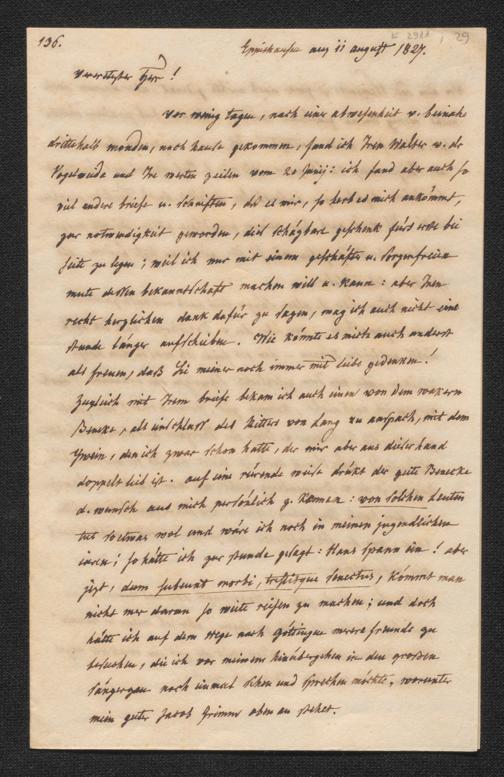 136.
Eppishausen aug 11 august 1827.
Verertester Herr!
Vor wenig tagen, nach einer abwesenheit v. beinahe
drittehalb monden, nach hause gekommen, fand ich Iren Walter v. der
Vogelweida und Ire werten zeilen vom 20 Junij: ich fand aber auch so
viel andere briefe u. schriften, daß es mir, so herb es mich ankömmt,
zur notwendigkeit geworden, diß schäzbare geschenk fürs erste bei
seite zu legen; weil ich nur mit einem geschäfts u. sorgenfreien
mute dessen bekanntschaft machen will u. kann: aber Inen
recht herzlichen dank dafür zu sagen, mag ich auch nicht eine
stunde länger aufschieben. Wie könnte es mich auch anderst
als freuen, daß Sie meiner noch immer mit liebe gedenken!
Zugleich mit Irem briefe bekam ich auch einen von dem wakern
Benecke, als einschluß des Ritters von Lang zu anspach, mit dem
Ywein, den ich zwar schon hatte, der mir aber aus dieser hand
doppelt lieb ist. auf eine rürende weise drükt der gute Benecke
d. wunsch aus mich persönlich z. kennen: von solchen leuten
tut so etwas wol und wäre ich noch in meinen jugendlichen
iaren; so hätte ich zur stunde gesagt: Hans spann ein! aber
jezt, dum subeunt morbi, tristisque senectus, kömmt man
nicht mer daran so weite reisen zu machen; und doch
hätte ich auf dem wege nach Göttingen merere freunde zu
besuchen, die ich vor meinem hinübergehen in den großen
sängergau noch einmal sehen und sprechen möchte, worunter
mein guter Jacob Grimm oben an stehet.